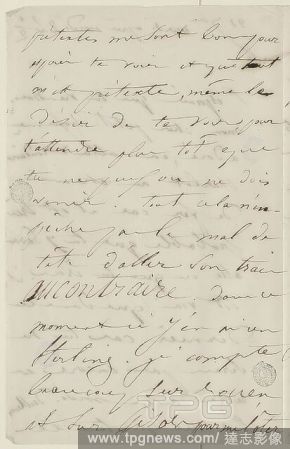 prétextes me sont bons pour
pour te voir et que tout
m'est prétexte, même le
désir de te voir pour
t'attendre plus tôt que
tu ne ne dois
venir. Tout cela n'em-
pêche pas le mal de
tête d'aller son train
au contraire dans ce
moment-ci j'en ai un
. je compte
beaucoup sur
et sur pour m'ôter
TPG
www.tpgnews.com / 達志影像